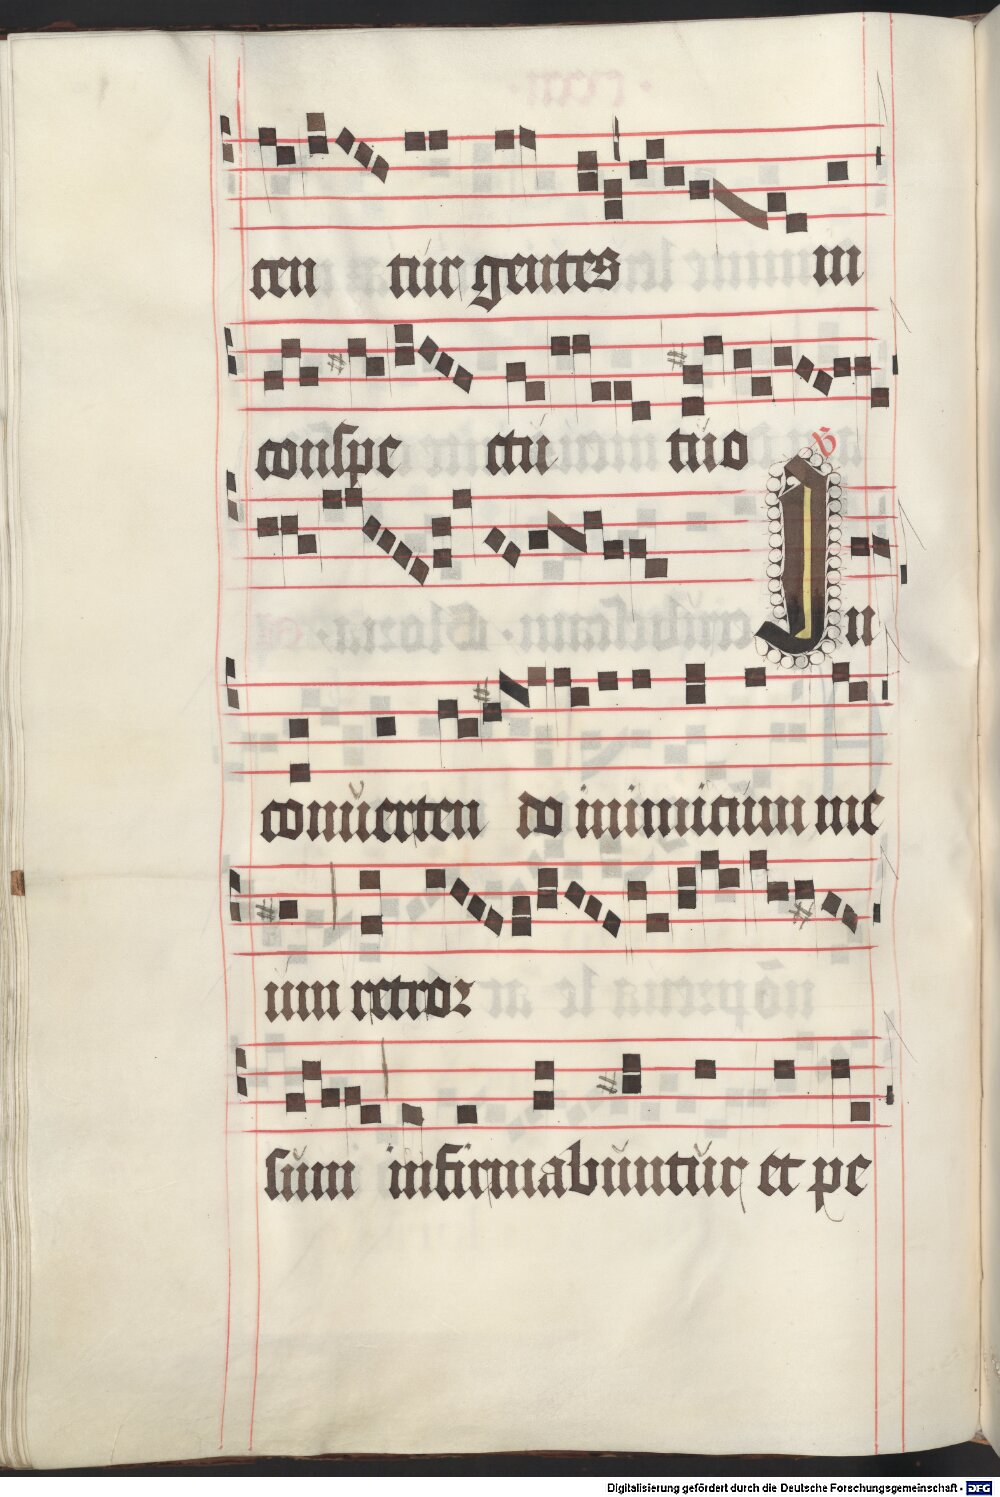 cen tur gentes in
conspe ctu tuo ℣
In
conuerten do inimicum me
um retror
sum infirmabuntur et pe
Digitalisierung gefördert durch die Deutsche Forschungsgemeinschaft - DFG